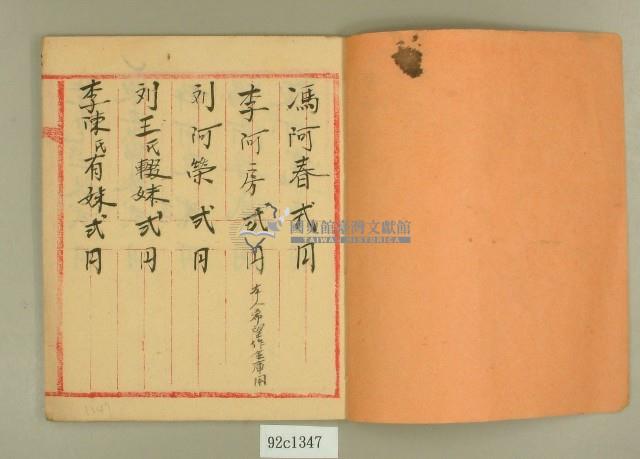 馮阿春弍円
李阿房弍円
本人希望作金庫用
刘阿榮弍円
刘王氏輟妹弍円
李陳氏有妹弍円
國史館臺灣文獻館
TAIWAN HISTORICA
1347
92c1347